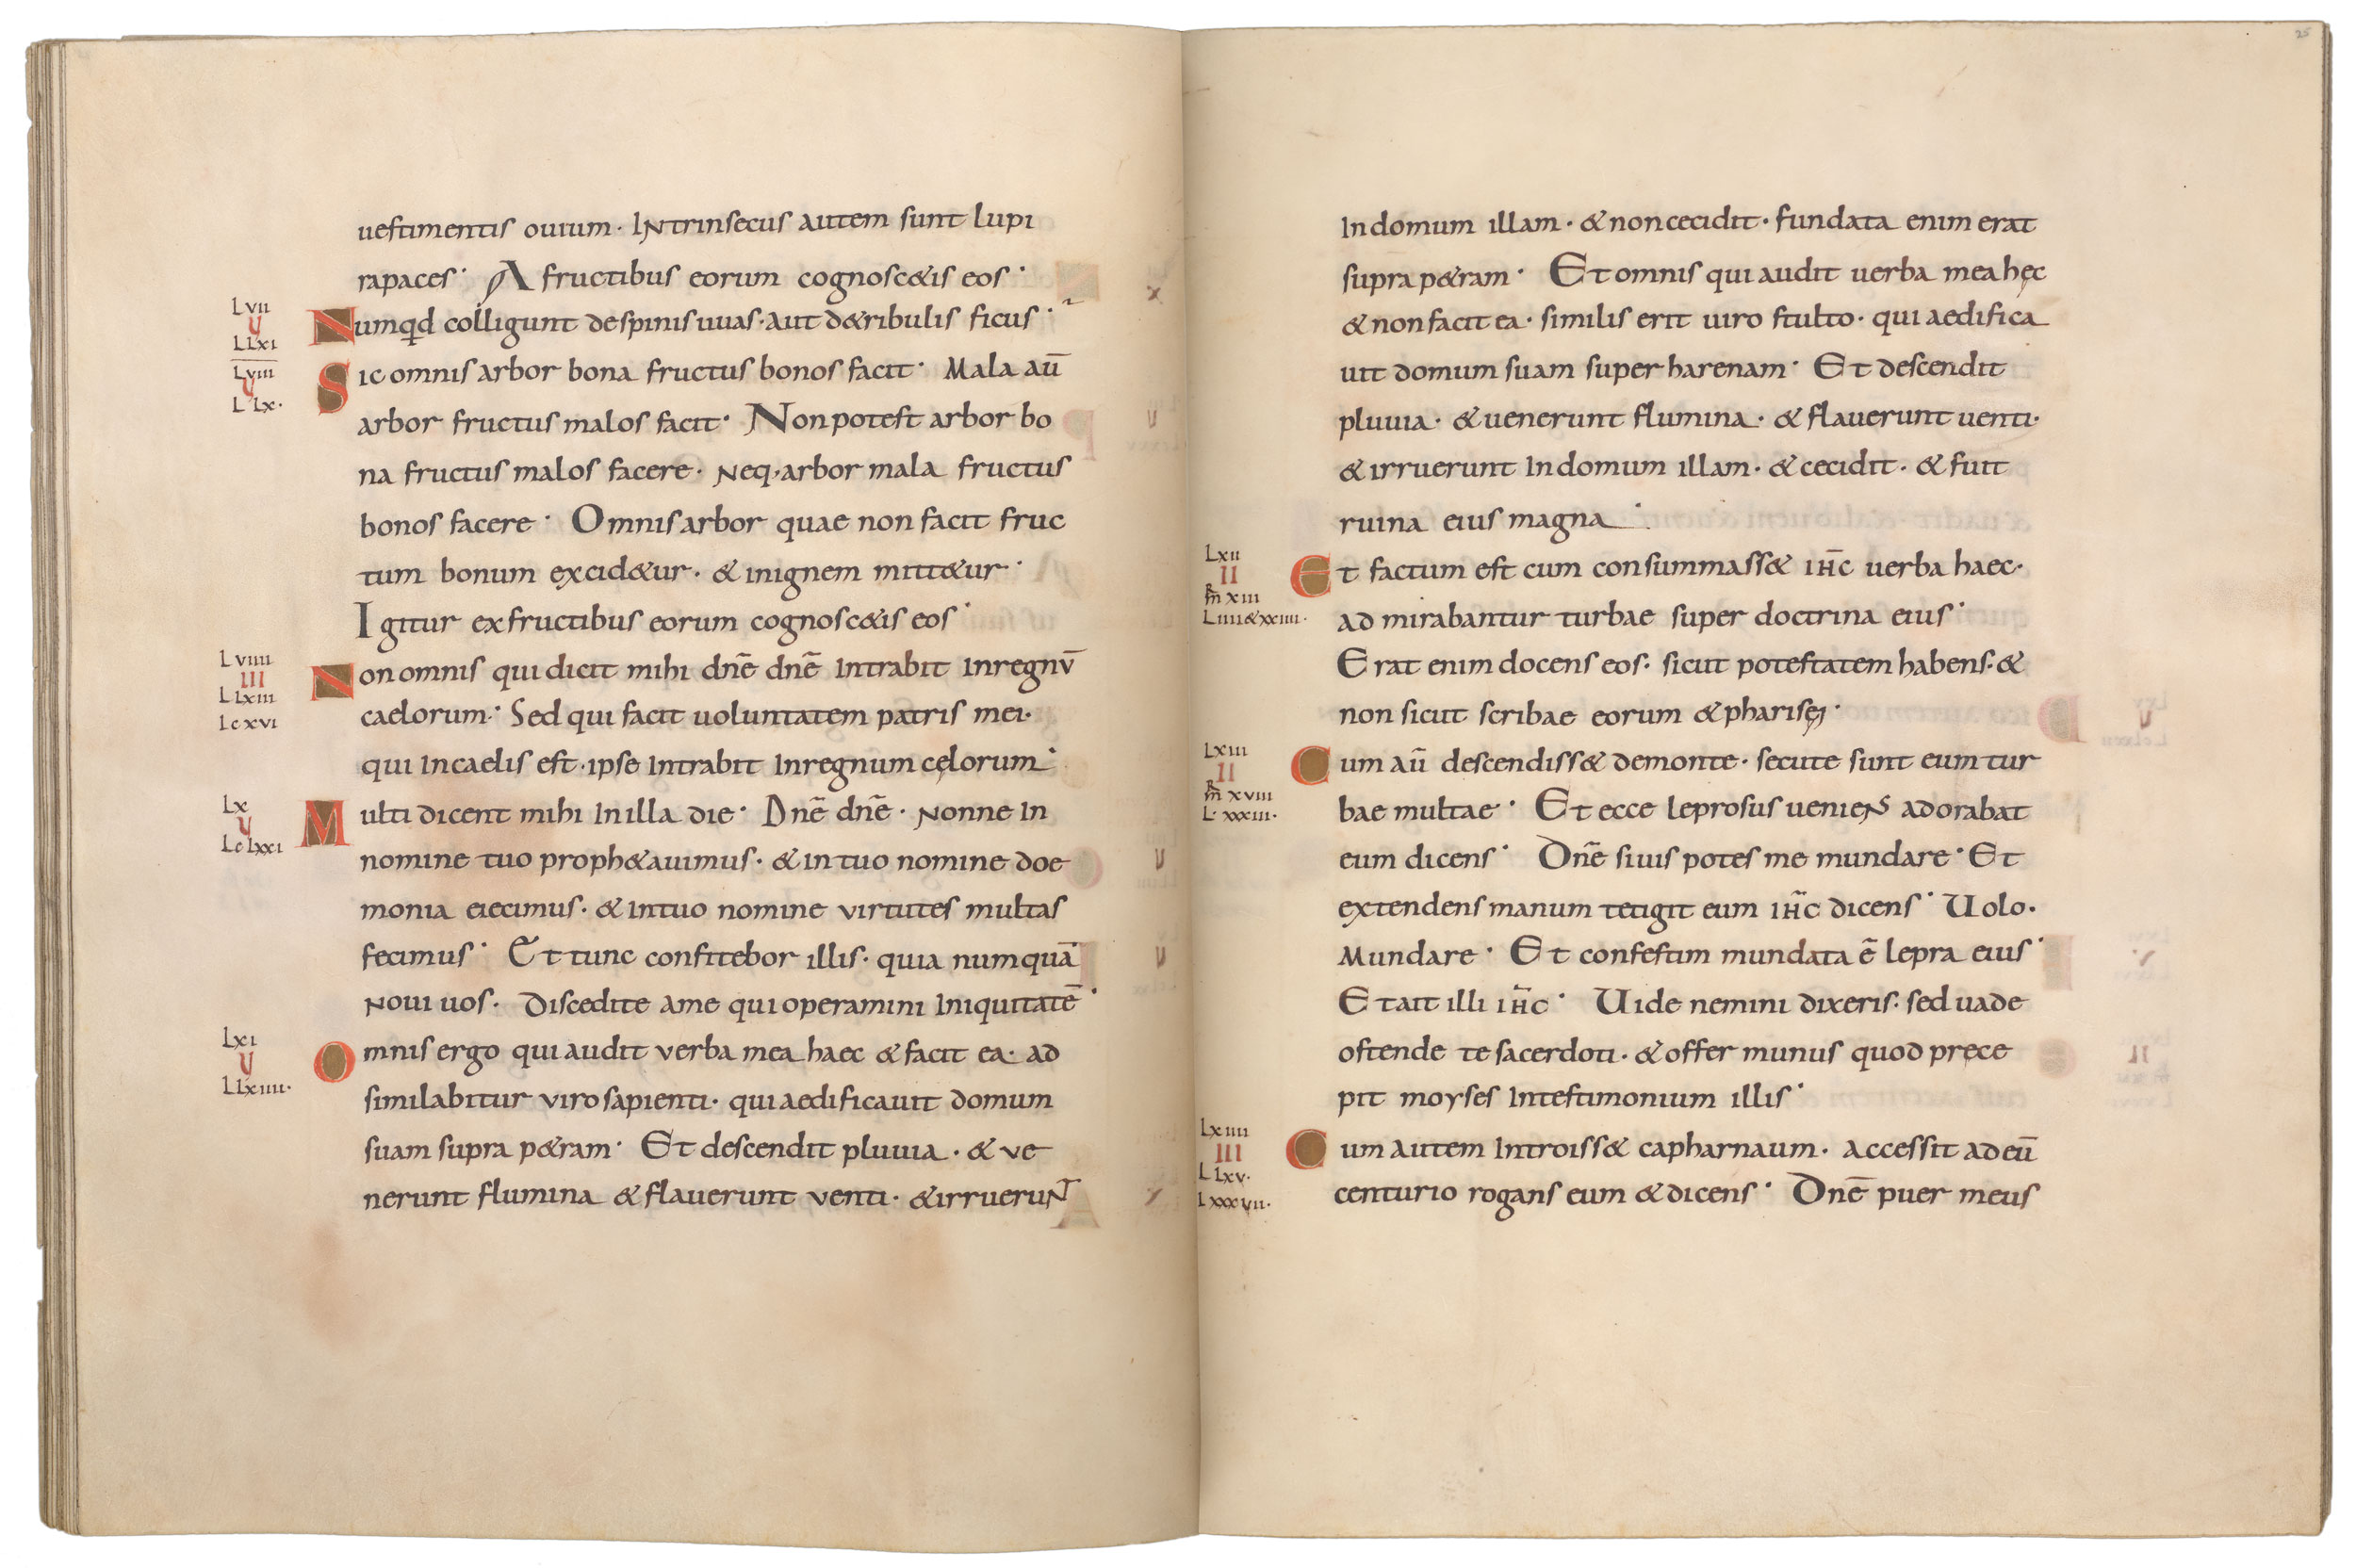 uestimentis ouium· Intrinsecus autem sunt lupi
rapaces· A fructibus eorum cognosc&is eos·
Lvii
V
L Lxi
Numqđ colligunt despinis uuas· aut d&ribulis ficus·
Lviii
V
L Lx·
Sic omnis arbor bona fructus bonos facit· Mala aū
arbor fructus malos facit· Non potest arbor bo
na fructus malos facere· Neq· arbor mala fructus
bonos facere· Omnis arbor quae non facit fruc
tum bonum excid&ur· & inignem mitt&ur·
Igitur exfructibus eorum cognosc&is eos·
Lviiii
III
L Lxiii
L cxvi
Non omnis qui dicit mihi dnē dnē Intrabit Inregnū
caelorum· Sed qui facit uoluntatem patris mei·
qui Incaelis est· ipse Intrabit Inregnum cęlorum·
Lx
V
L cLxxi
Multi dicent mihi In illa die· Dnē dnē· Nonne In
nomine tuo proph&auimus· & in tuo nomine doe
monia eiecimus· & Intuo nomine virtutes multas
fecimus· Et tunc confitebor illis· quia numquā
Noui uos· Discedite ame qui operamini Iniquitatē·
Lxi
V
L Lxiiii·
Omnis ergo qui audit verba mea haec & facit ea· ad
similabitur viro sapienti· qui aedificauit domum
suam supra p&ram· Et descendit pluuia· & ve
nerunt flumina & flauerunt venti· & irruerunt
25
In domum illam· & non cecidit· fundata enim erat
supra p&ram· Et omnis qui audit uerba mea hęc
& non facit ea· similis erit uiro stulto· qui aedifica
uit domum suam super harenam· Et descendit
pluuia· & uenerunt flumina· & flauerunt uenti·
& irruerunt In domum illam· & cecidit· & fuit
ruina eius magna·
Lxii
II
m̄ xiii
L iiii & xxiiii·
Et factum est cum consummass& ih̄c uerba haec·
admirabantur turbae super doctrina eius·
Erat enim docens eos· sicut potestatem habens· &
non sicut scribae eorum & pharisęi·
Lxiii
II
m̄ xviii
L· xxxiii·
Cum aū descendiss& demonte· secute sunt eum tur
bae multae· Et ecce leprosus ueniens adorabat
eum dicens· Dnē siuis potes me mundare· Et
extendens manum tetigit eum ih̄c dicens· Uolo·
Mundare· Et confestim mundata ē lepra eius·
Et ait illi ih̄c· Uide nemini dixeris· sed uade
ostende te sacerdoti· & offer munus quod pręce
pit moyses Intestimonium illis·
Lxiiii
III
L Lxv·
L xxxvii·
Cum autem Introiss& capharnaum· accessit ad eū
centurio rogans eum & dicens· Dnē puer meus